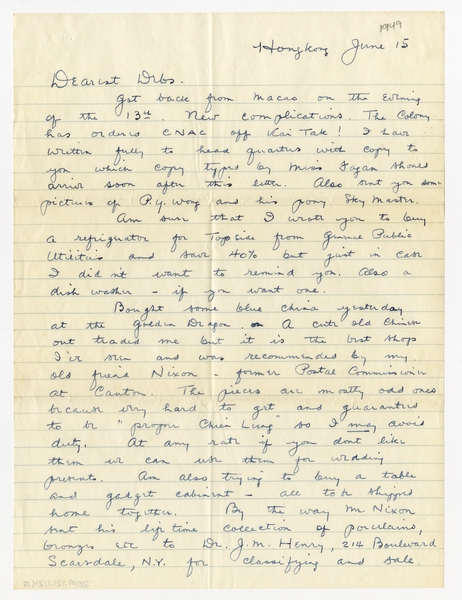 1949
Hongkong June 15
Dearest Debs.
Got back from Macao on the Evening
of the 13th. New complications. The Colony
has ordered CNAC off Kai Tak! I have
written fully to head quarters with copy to
you which copy typed by Miss Fagan should
arrive soon after this letter. Also sent you some
pictures of P.Y. Wong and his pony Sky Master.
Am sure that I wrote you to buy
a refrigerator for Topside from General Public
Utilities and save 40% but just in case
I didn't want to remind you. Also a
dish washer - if you want one.
Bought some blue china yesterday
at the Golden Dragon. A cute old Chinese
out traded me but it is the best shop
I've seen and was recommended by my
old friend Nixon - former Postal Commissioner
at Canton. The pieces are mostly odd ones
because very hard to get and guaranteed
to be "proper Chien Lung" so I may avoid
duty. At any rate if you dont like
them we can use them for wedding
presents. Am also trying to buy a table
and gadget cabinet - all to be shipped
home together. By the way Mr. Nixon
sent his life time collection of porcelains,
bronzes etc to Dr. J.M. Henry, 214 Boulevard
Scarsdale, N.Y. for classifying and sale.